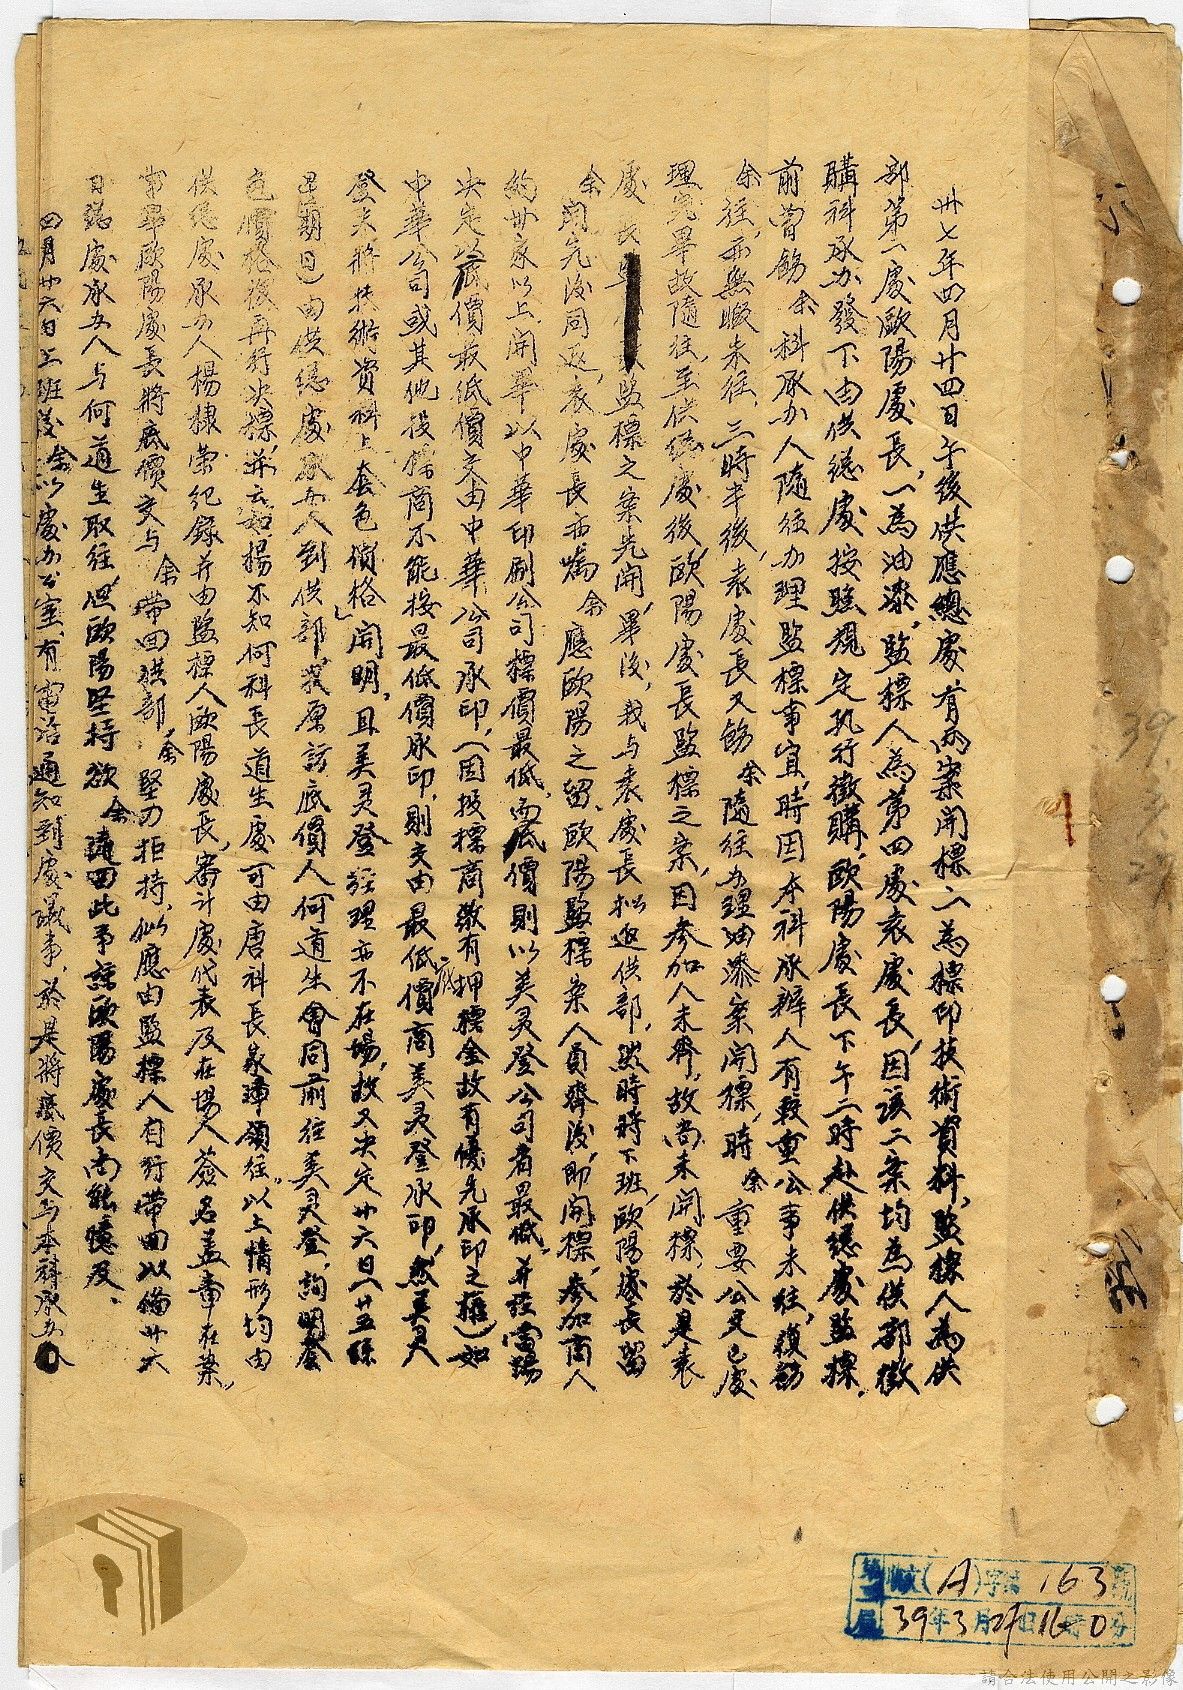 卅七年四月廿四日午後供應總處有兩案開標一為標印技術資料，監標人為供
部第二處歐陽處長，一為油漆，監標人為第四處袁處長，因該二案均為供部徵
購科承办發下由供總處按照規定執行徵購，歐陽處長下午二時赴供總處監標，
前曾飭余科承办人隨往办理監標事宜，時因本科承辦人有較重公事未往，復飭
余往，亦無暇未往，三時半後，袁處長又飭余隨往办理油漆案開標，時余重要公文已處
理完畢故隨往，至供總處後，歐陽處長監標之案，因參加人未齊，故尚未開標，於是袁
處長監標之案先開，畢後，我与袁處長拟返供部，幽時將下班，歐陽處長留
余開完後同返，袁處長亦囑余應歐陽之留，歐陽監標案人員齊後，即開標，參加商人
約卅家以上，開畢以中華印刷公司標價最低，而底價則以美灵登公司者最低，并經當場
決定以底價最低價交由中華公司承印，（因投標商繳有押標金故有優先承印之權）如
中華公司或其他投標商不能按最低價承印，則交由最低底價商美灵登承印，然美灵
登未將技術資料上套色價格」開明，且美灵登經理亦不在場，故又決定廿六日（廿五係
星期日）由供總處承办人到供部，找原訪底價人何道生會同前往美灵登，詢明套
色價格後再行決標，并云如楊不知何科長道生處可由唐科長家瑋領往。以上情形，均由
供總處承办人楊棣棠紀錄并由監標人歐陽處長，審計處代表及在場人簽名蓋章在案。
常畢歐陽處長將底價交与余帶回供部，余堅力拒持，拟應由監標人自行帶回以備廿六
日總處承办人与何道生取往，但歐陽堅持欲余帶回此事諒歐陽處長尚能憶及。
四月廿六日上班後余以處办公室，有電話通知到處議事，於是將底價交与本科承办人
39
第二局 收文(A)字第163號
39年3月29日16時0分
請合法使用公開之影像